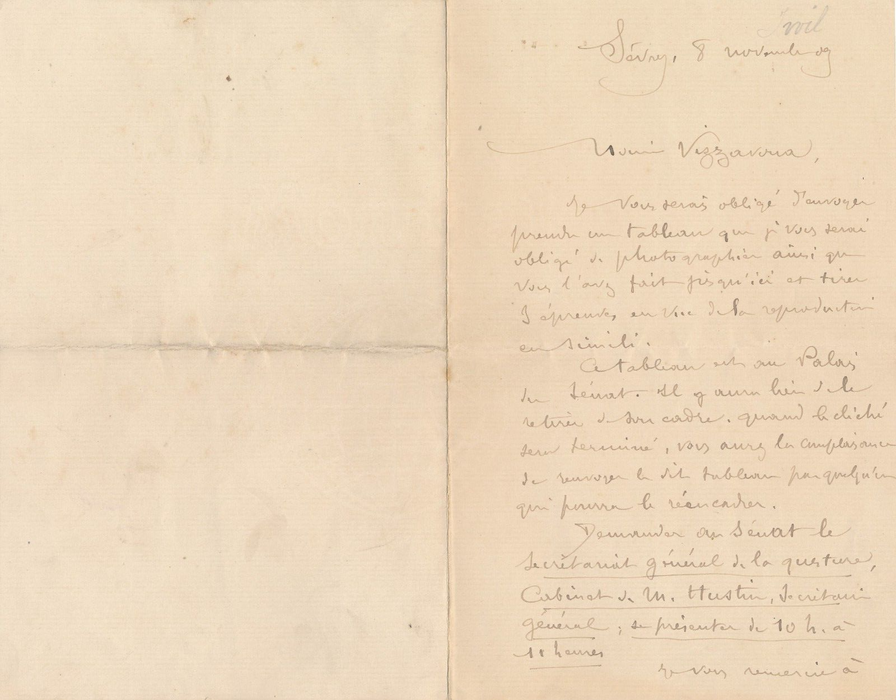 Sèvres, 8 novembre 09
Vizzavona,
Je vous serais obligé d'envoyer
prendre un tableau que je vous serai
obligé de photographier ainsi que
vous l'avez fait jusqu'ici et tirer
3 épreuves en vue de la reproduction
en simili.
Ce tableau est au Palais
du Sénat. Il y aura lieu de le
retirer de son cadre. quand le cliché
sera terminé, vous aurez la complaisance
de renvoyer le dit tableau par quelqu'un
qui pourra le réencadrer.
Demander au Sénat le
Secrétariat général de la questure,
Cabinet de M. Hustin, Secrétaire
général ; se présenter de 10 h. à
11 heures
Je vous remercie à